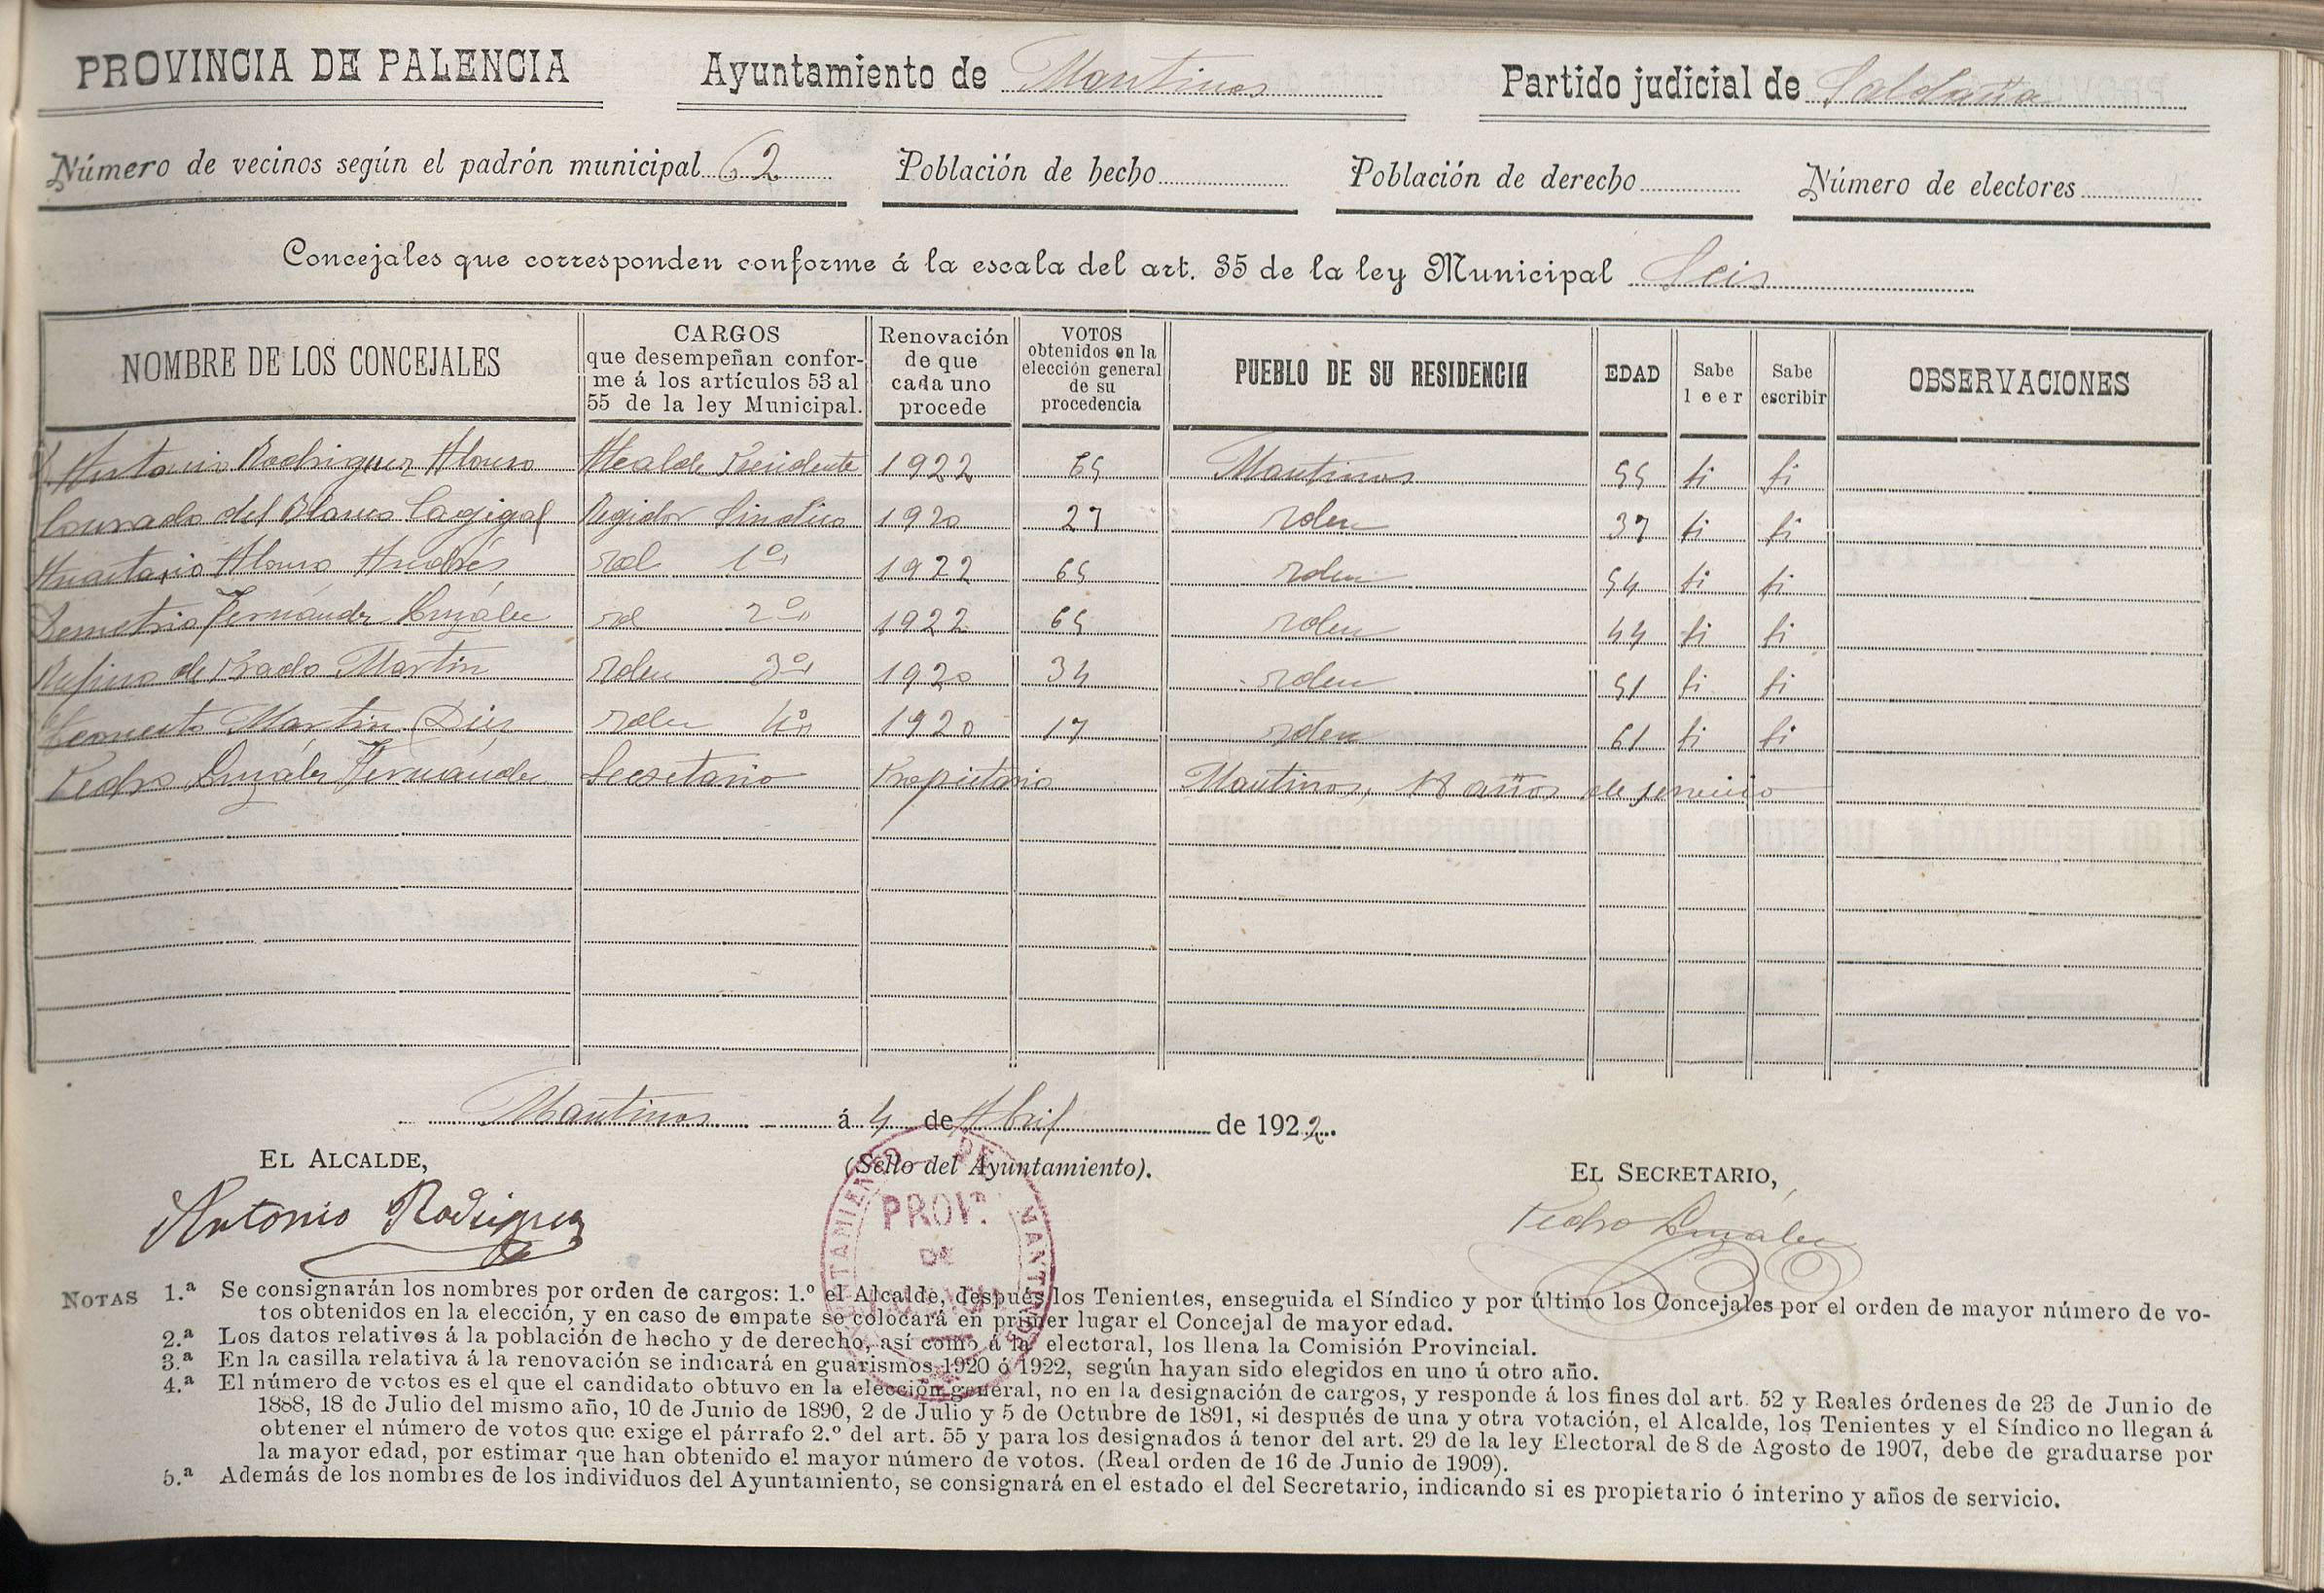 PROVINCIA DE PALENCIA Ayuntamiento de Mantinos Partido judicial de Saldaña
Número de vecinos según el padrón municipal 62 Población de hecho Población de derecho Número de electores
Concejales que corresponden conforme á la escala del art. 35 de la ley Municipal Seis
NOMBRE DE LOS CONCEJALES
CARGOS
que desempeñan confor-
me á los artículos 53 al
55 de la ley Municipal.
Renovación
de que
cada uno
procede
VOTOS
obtenidos en la
elección general
de su
procedencia
PUEBLO DE SU RESIDENCIA
EDAD
Sabe
leer
Sabe
escribir
OBSERVACIONES
Antonio Rodriguez Alonso Alcalde Presidente 1922 65 Mantinos 55 si si
Conrado del Blanco Cagigal Regidor Sindico 1920 27 Iden 37 si si
Anastasio Alonso Andrés 1º 1922 65 Iden 54 si si
Demetrio Fernández González 2º 1922 65 Iden 44 si si
Rufino de Prado Martín Iden 3º 1920 34 Iden 51 si si
Martín Diez Iden 4º 1920 17 Iden 61 si si
Pedro González Fernández Secretario Propietario Mantinos, 18 años de servicio
Mantinos á 4 de Abril de 1922.
EL ALCALDE, (Sello del Ayuntamiento). EL SECRETARIO,
Antonio Rodriguez
PROVª.
DE
Pedro González
NOTAS 1.ª Se consignarán los nombres por orden de cargos: 1.º el Alcalde, después los Tenientes, enseguida el Síndico y por último los Concejales por el orden de mayor número de vo-
tos obtenidos en la elección, y en caso de empate se colocará en primer lugar el Concejal de mayor edad.
2.ª Los datos relativos á la población de hecho y de derecho, así como á la electoral, los llena la Comisión Provincial.
3.ª En la casilla relativa á la renovación se indicará en guarismos 1920 ó 1922, según hayan sido elegidos en uno ú otro año.
4.ª El número de votos es el que el candidato obtuvo en la elección general, no en la designación de cargos, y responde á los fines del art. 52 y Reales órdenes de 23 de Junio de
1888, 18 de Julio del mismo año, 10 de Junio de 1890, 2 de Julio y 5 de Octubre de 1891, si después de una y otra votación, el Alcalde, los Tenientes y el Síndico no llegan á
obtener el número de votos que exige el párrafo 2.º del art. 55 y para los designados á tenor del art. 29 de la ley Electoral de 8 de Agosto de 1907, debe de graduarse por
la mayor edad, por estimar que han obtenido el mayor número de votos. (Real orden de 16 de Junio de 1909).
5.ª Además de los nombres de los individuos del Ayuntamiento, se consignará en el estado el del Secretario, indicando si es propietario ó interino y años de servicio.